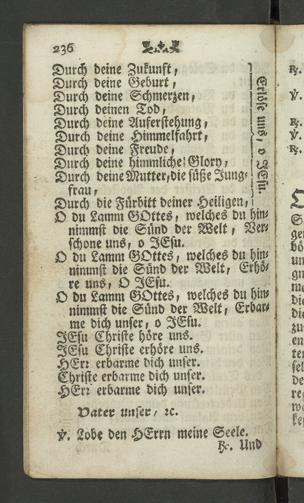 236
Durch deine Zukunft,
Durch deine Geburt,
Durch deine Schmerzen,
Durch deinen Tod,
Durch deine Auferstehung,
Durch deine Himmelfahrt,
Durch deine Freude,
Durch deine himmlische Glory,
Durch deine Mutter, die süße Jung-
frau,
Durch die Fürbitt deiner Heiligen,
Erlöse uns, o JEsu.
O du Lamm GOttes, welches du hin-
nimmst die Sünd der Welt, Ver-
schone uns, o JEsu.
O du Lamm GOttes, welches du hin-
nimmst die Sünd der Welt, Erhö-
re uns, O JEsu.
O du Lamm GOttes, welches du hin-
nimmst die Sünd der Welt, Erbar-
me dich unser, o JEsu.
JEsu Christe höre uns.
JEsu Christe erhöre uns.
HErr erbarme dich unser.
Christe erbarme dich unser.
HErr erbarme dich unser.
Vater unser, ꝛc.
℣. Lobe den HErrn meine Seele.
℟. Und